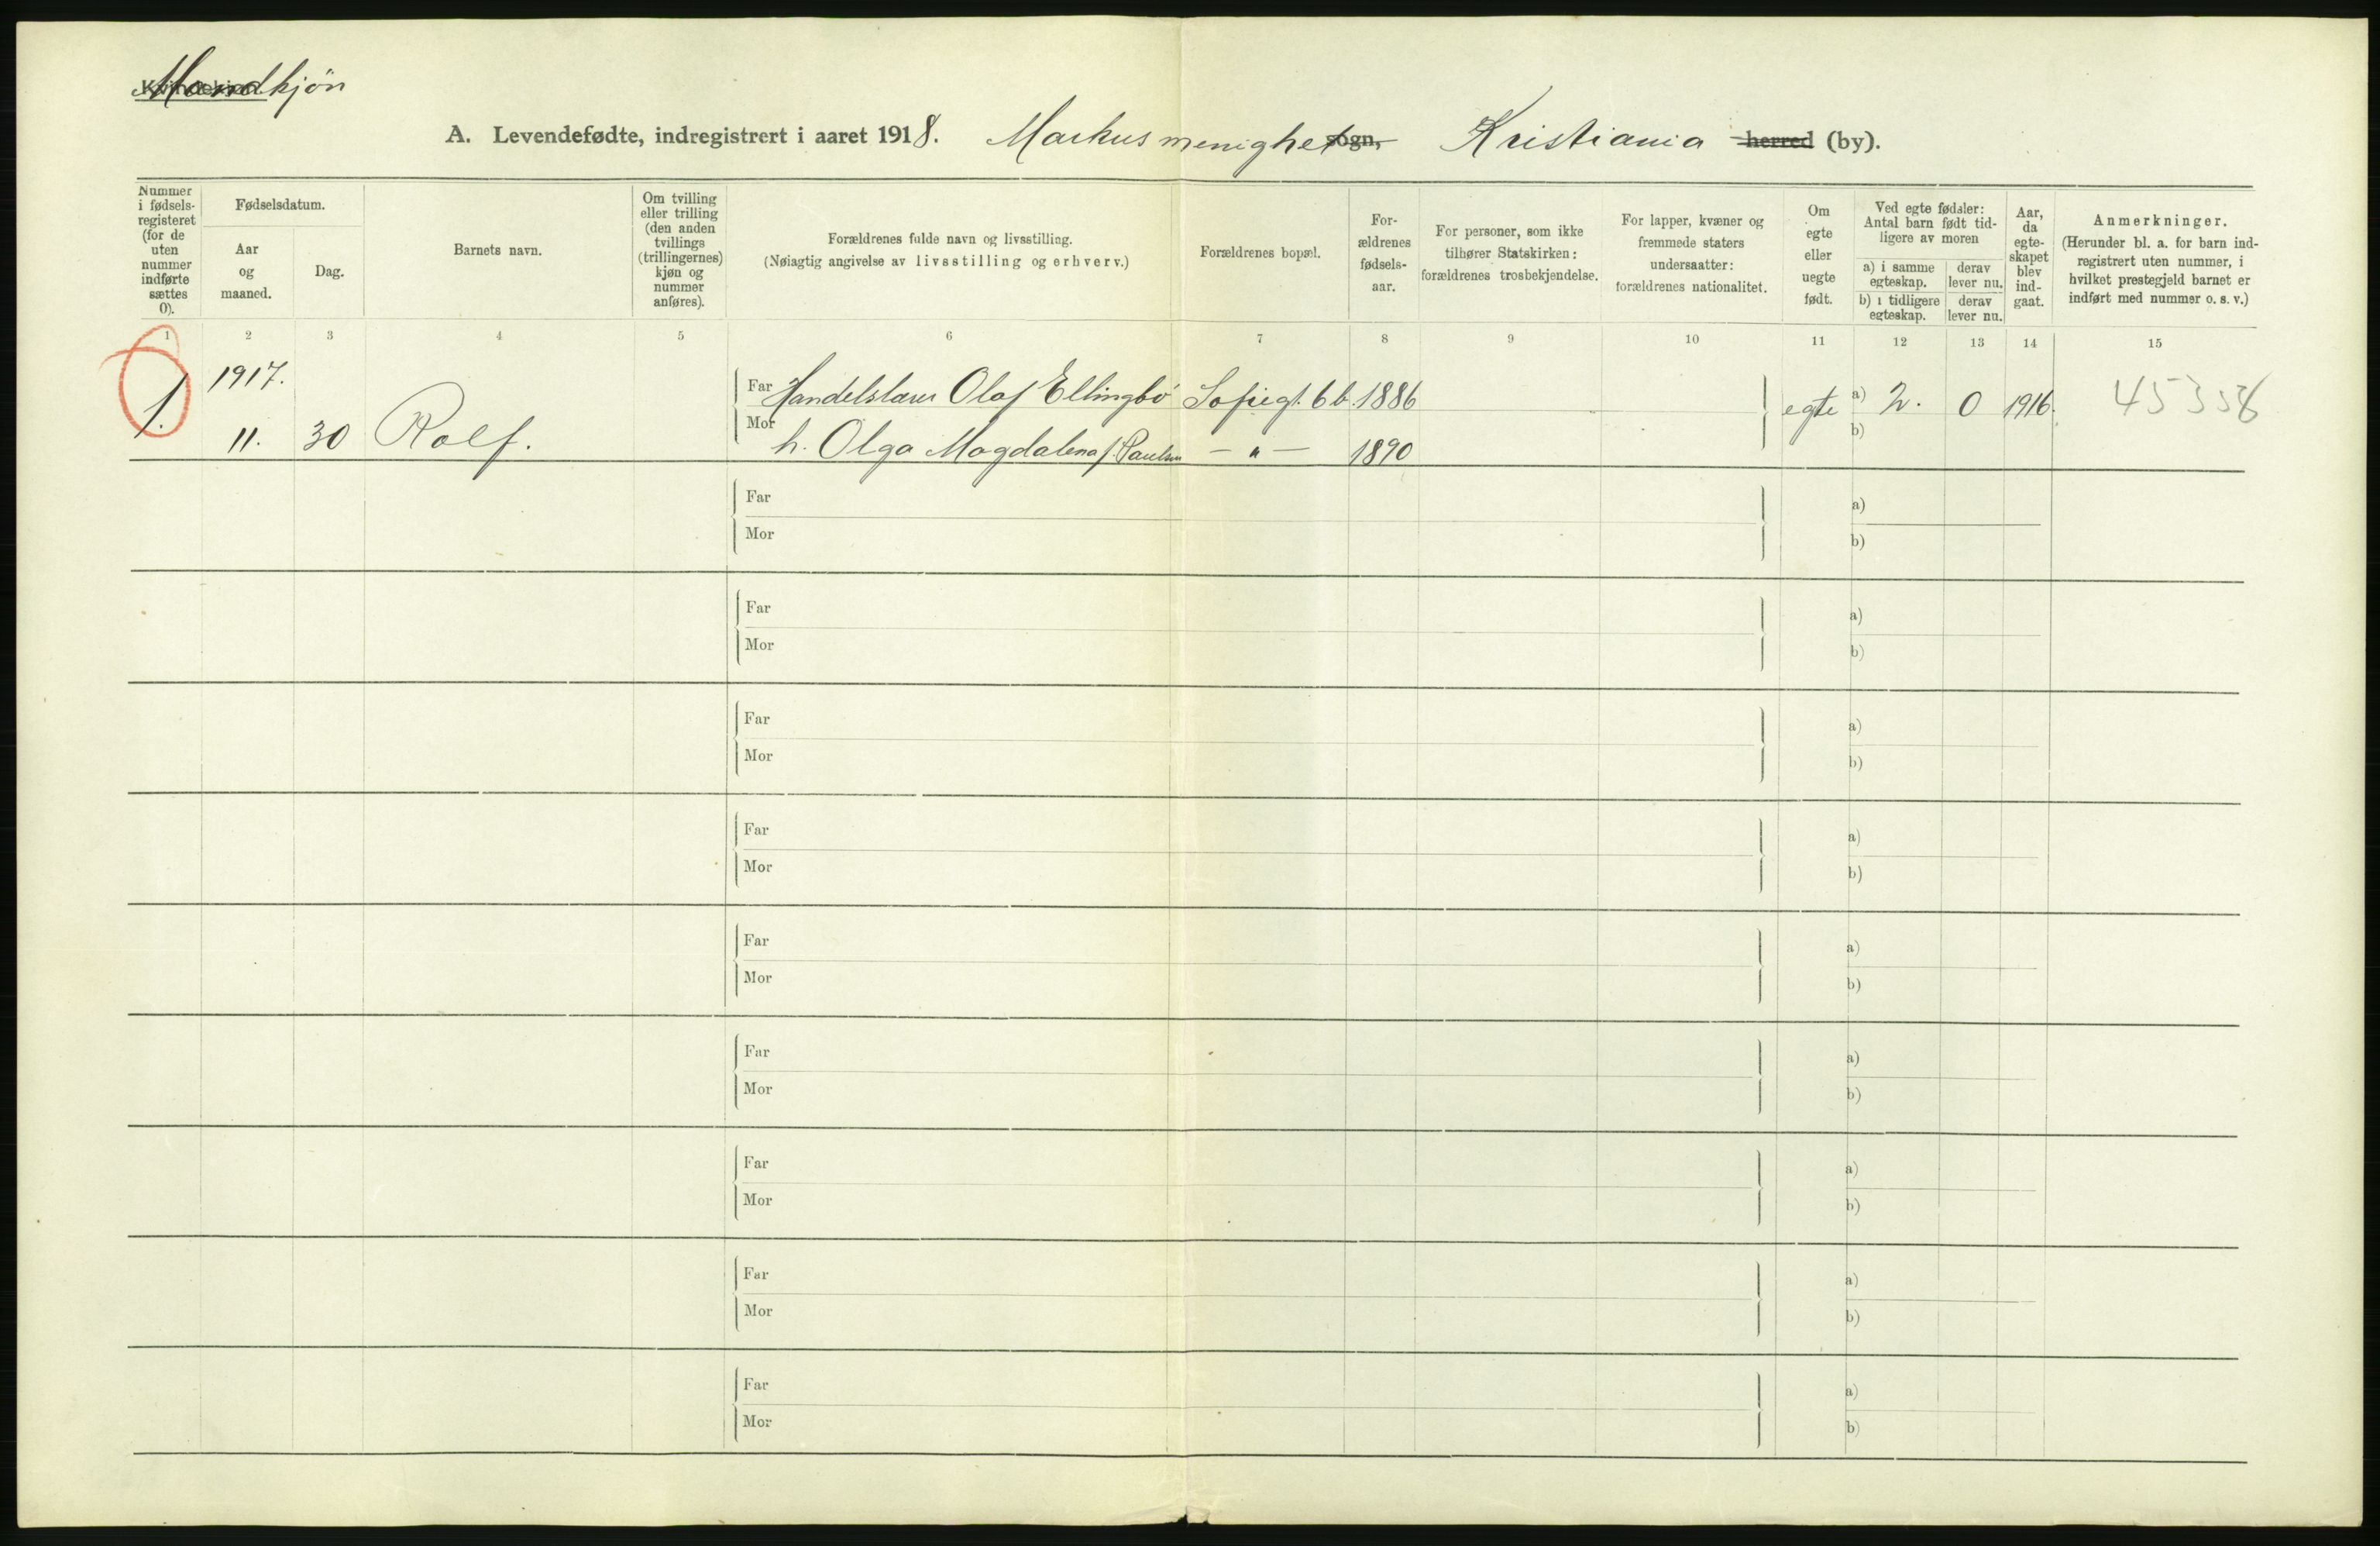 Mandkjön
A. Levendefødte, indregistrert i aaret 1918. Markus menighet sogn, Kristiania herred (by).
Nummer i fødsels-registeret (for de uten nummer indførte sættes 0).
Fødselsdatum.
Aar og maaned.
Dag.
Barnets navn.
Om tvilling eller trilling (den anden tvillings (trillingernes) kjøn og nummer anføres).
Forældrenes fulde navn og livsstilling.
(Nøiagtig angivelse av livsstilling og erhverv.)
Forældrenes bopæl.
For-ældrenes fødsels-aar.
For personer, som ikke tilhører Statskirken: forældrenes trosbekjendelse.
For lapper, kvæner og fremmede staters undersaatter: forældrenes nationalitet.
Om egte eller uegte født.
Ved egte fødsler: Antal barn født tid-ligere av moren
a) i samme egteskap.
derav lever nu.
b) i tidligere egteskap.
derav lever nu.
Aar, da egte-skapet blev ind-gaat.
Anmerkninger.
(Herunder bl. a. for barn ind-registrert uten nummer, i hvilket prestegjeld barnet er indført med nummer o. s. v.)
1 2 3 4 5 6 7 8 9 10 11 12 13 14 15
1. 1917. Far Olaf Ellingbö Sofiegt. 6 b. 1886 egte a) 2. 0 1916.
11. 30 Rolf. Mor h. Olga Magdalena f. Paulsen — " — 1890 b)
Far a)
Mor b)
Far a)
Mor b)
Far a)
Mor b)
Far a)
Mor b)
Far a)
Mor b)
Far a)
Mor b)
Far a)
Mor b)
Far a)
Mor b)
Far a)
Mor b)